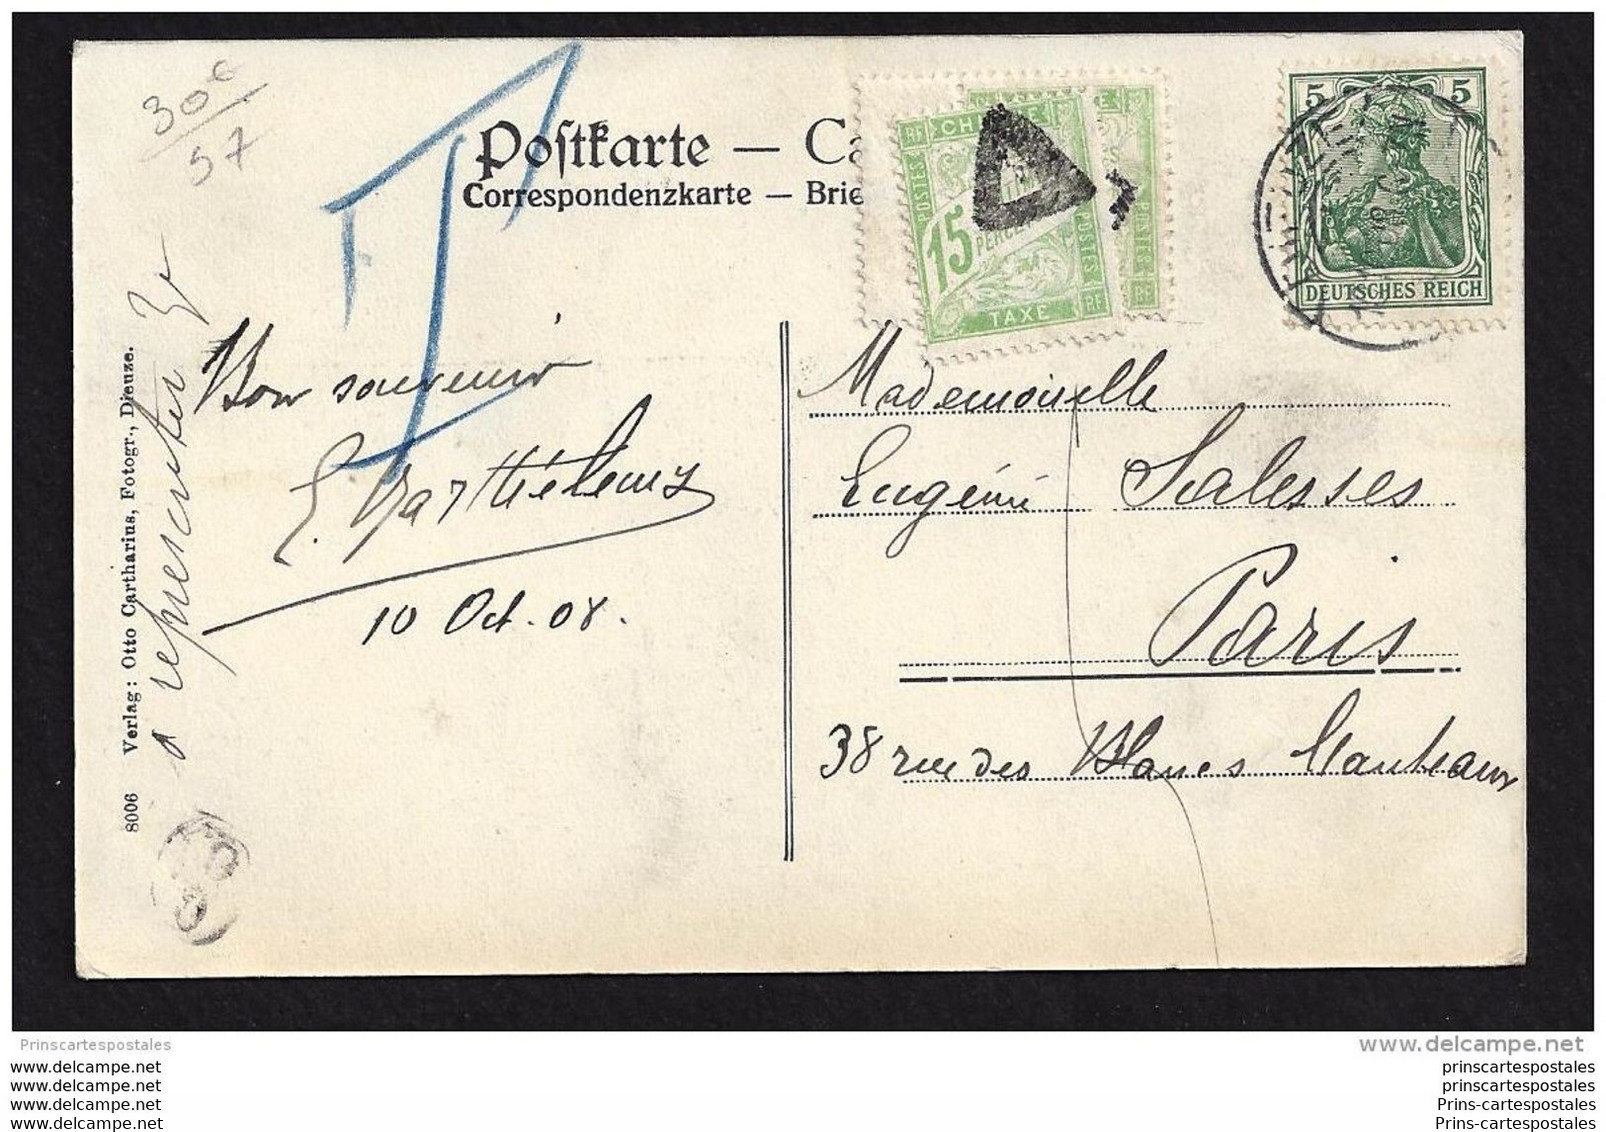 30c
57
T
Postkarte — Ca
Correspondenzkarte — Brie
RF CHI E
POSTES
15
PERCE
POSTES
TAXE
RF
5 5
DEUTSCHES REICH
a representer
Bon souvenir
E. Barthélemy
10 Oct. 08.
8006 Verlag: Otto Cartharius, Fotogr., Dieuze.
Mademoiselle
Eugénie Salesses
Paris
38 rue des Blancs Manteaux
Prinscartespostales
www.delcampe.net
www.delcampe.net prinscartespostales
www.delcampe.net prinscartespostales
www.delcampe.net Prins-cartespostales
www.delcampe.net Prins-cartespostales